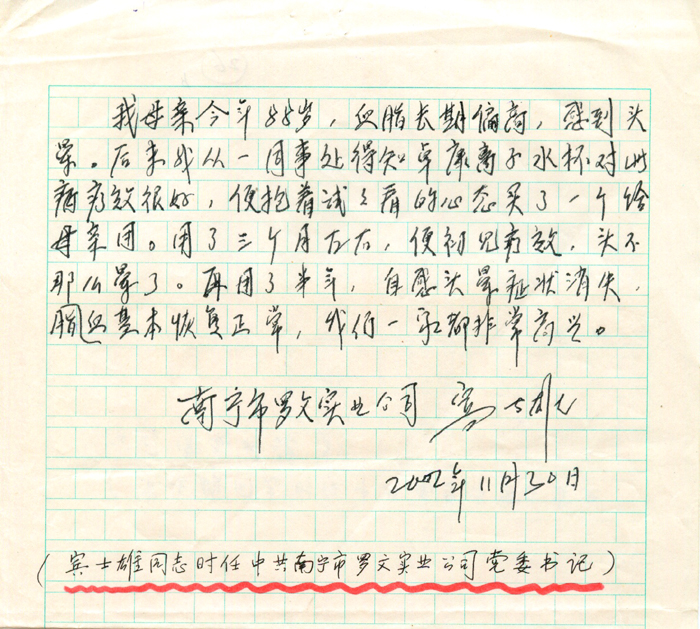 我母亲今年88岁，血脂长期偏高，感到头
晕。后来我从一同事处得知卓康离子水杯对此
病疗效很好，便抱着试之看的心态买了一个给
母亲用。用了三个月左右，便初见疗效，头不
那么晕了。再用了半年，自感头晕症状消失，
脂血基本恢复正常，我们一家都非常高兴。
南宁市罗文实业公司 宾士雄
2002年11月30日
（宾士雄同志时任中共南宁市罗文实业公司党委书记）